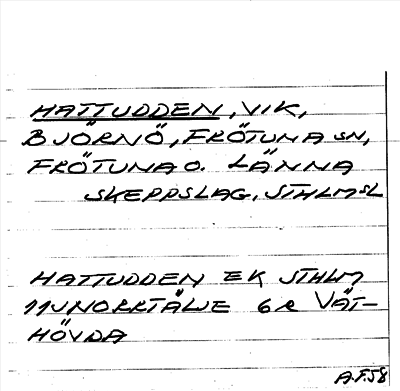 HATTUDDEN, VIK,
BJÖRNÖ, FRÖTUNA SN,
FRÖTUNA O. LÄNNA
SKEPPSLAG, STHLMSL
HATTUDDEN EK STHLM
11J NORRTÄLJE 6R VÄT-
HÖVDA
A.F.58